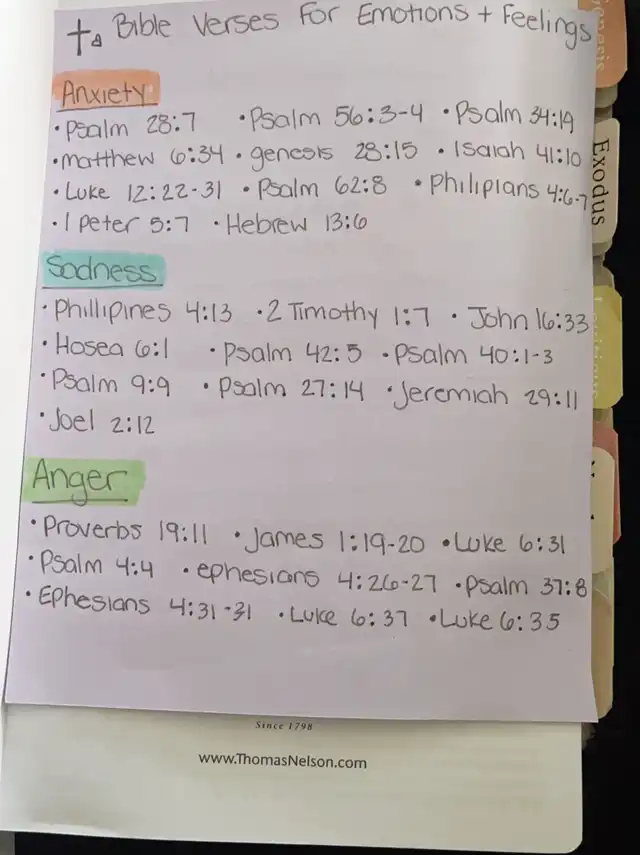 Bible Verses For Emotions + Feelings
Anxiety
• Psalm 28:7 • Psalm 56:3-4 • Psalm 34:19
• matthew 6:34 • genesis 28:15 • Isaiah 41:10
• Luke 12:22-31 • Psalm 62:8 • Philipians 4:6-7
• 1 peter 5:7 • Hebrew 13:6
Sadness
• Phillipines 4:13 • 2 Timothy 1:7 • John 16:33
• Hosea 6:1 • Psalm 42:5 • Psalm 40:1-3
• Psalm 9:9 • Psalm 27:14 • Jeremiah 29:11
• Joel 2:12
Anger
• Proverbs 19:11 • James 1:19-20 • Luke 6:31
• Psalm 4:4 • ephesians 4:26-27 • Psalm 37:8
• Ephesians 4:31-31 • Luke 6:37 • Luke 6:35
Since 1798
www.ThomasNelson.com
Exodus